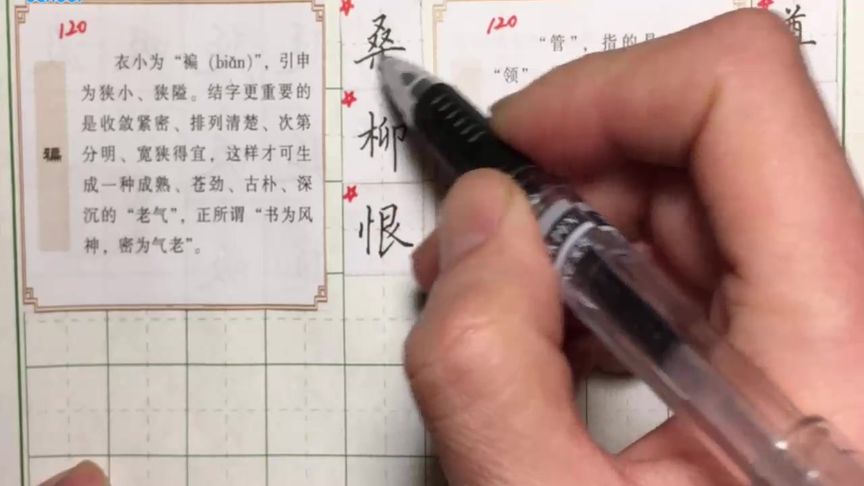 120
衣小为“褊（biǎn)”，引申
为狭小、狭隘。结字更重要的
是收敛紧密、排列清楚、次第
分明、宽狭得宜，这样才可生
成一种成熟、苍劲、古朴、深
沉的“老气”，正所谓“书为风
神，密为气老”。
桑
柳
恨
120
“管”，指的是
“领”
道